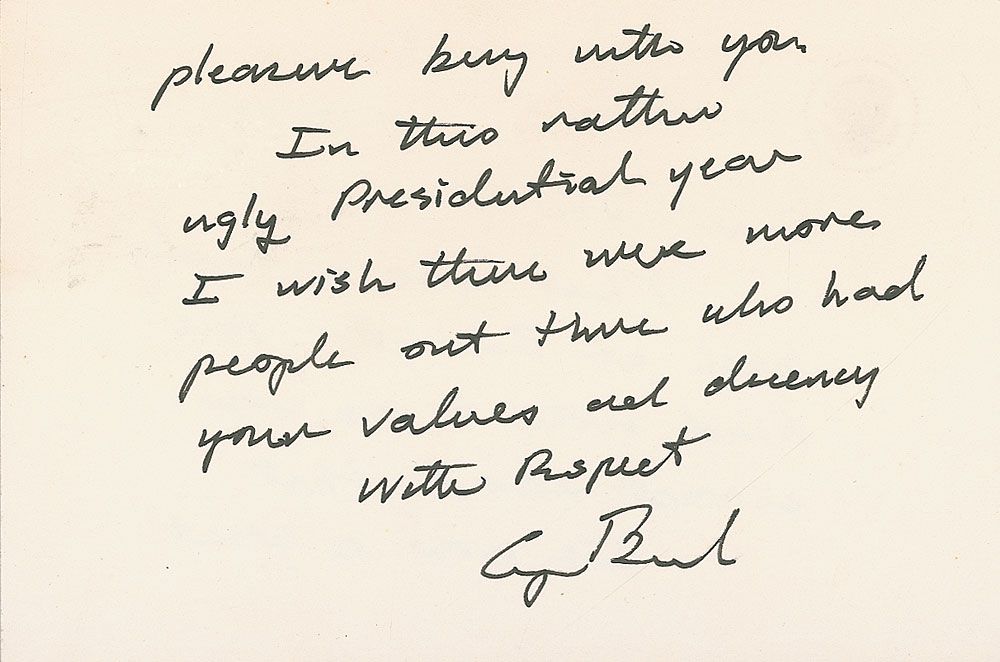 pleasure being with you.
In this rather
ugly Presidential year
I wish there were more
people out there who had
your values and decency
With Respect
George Bush